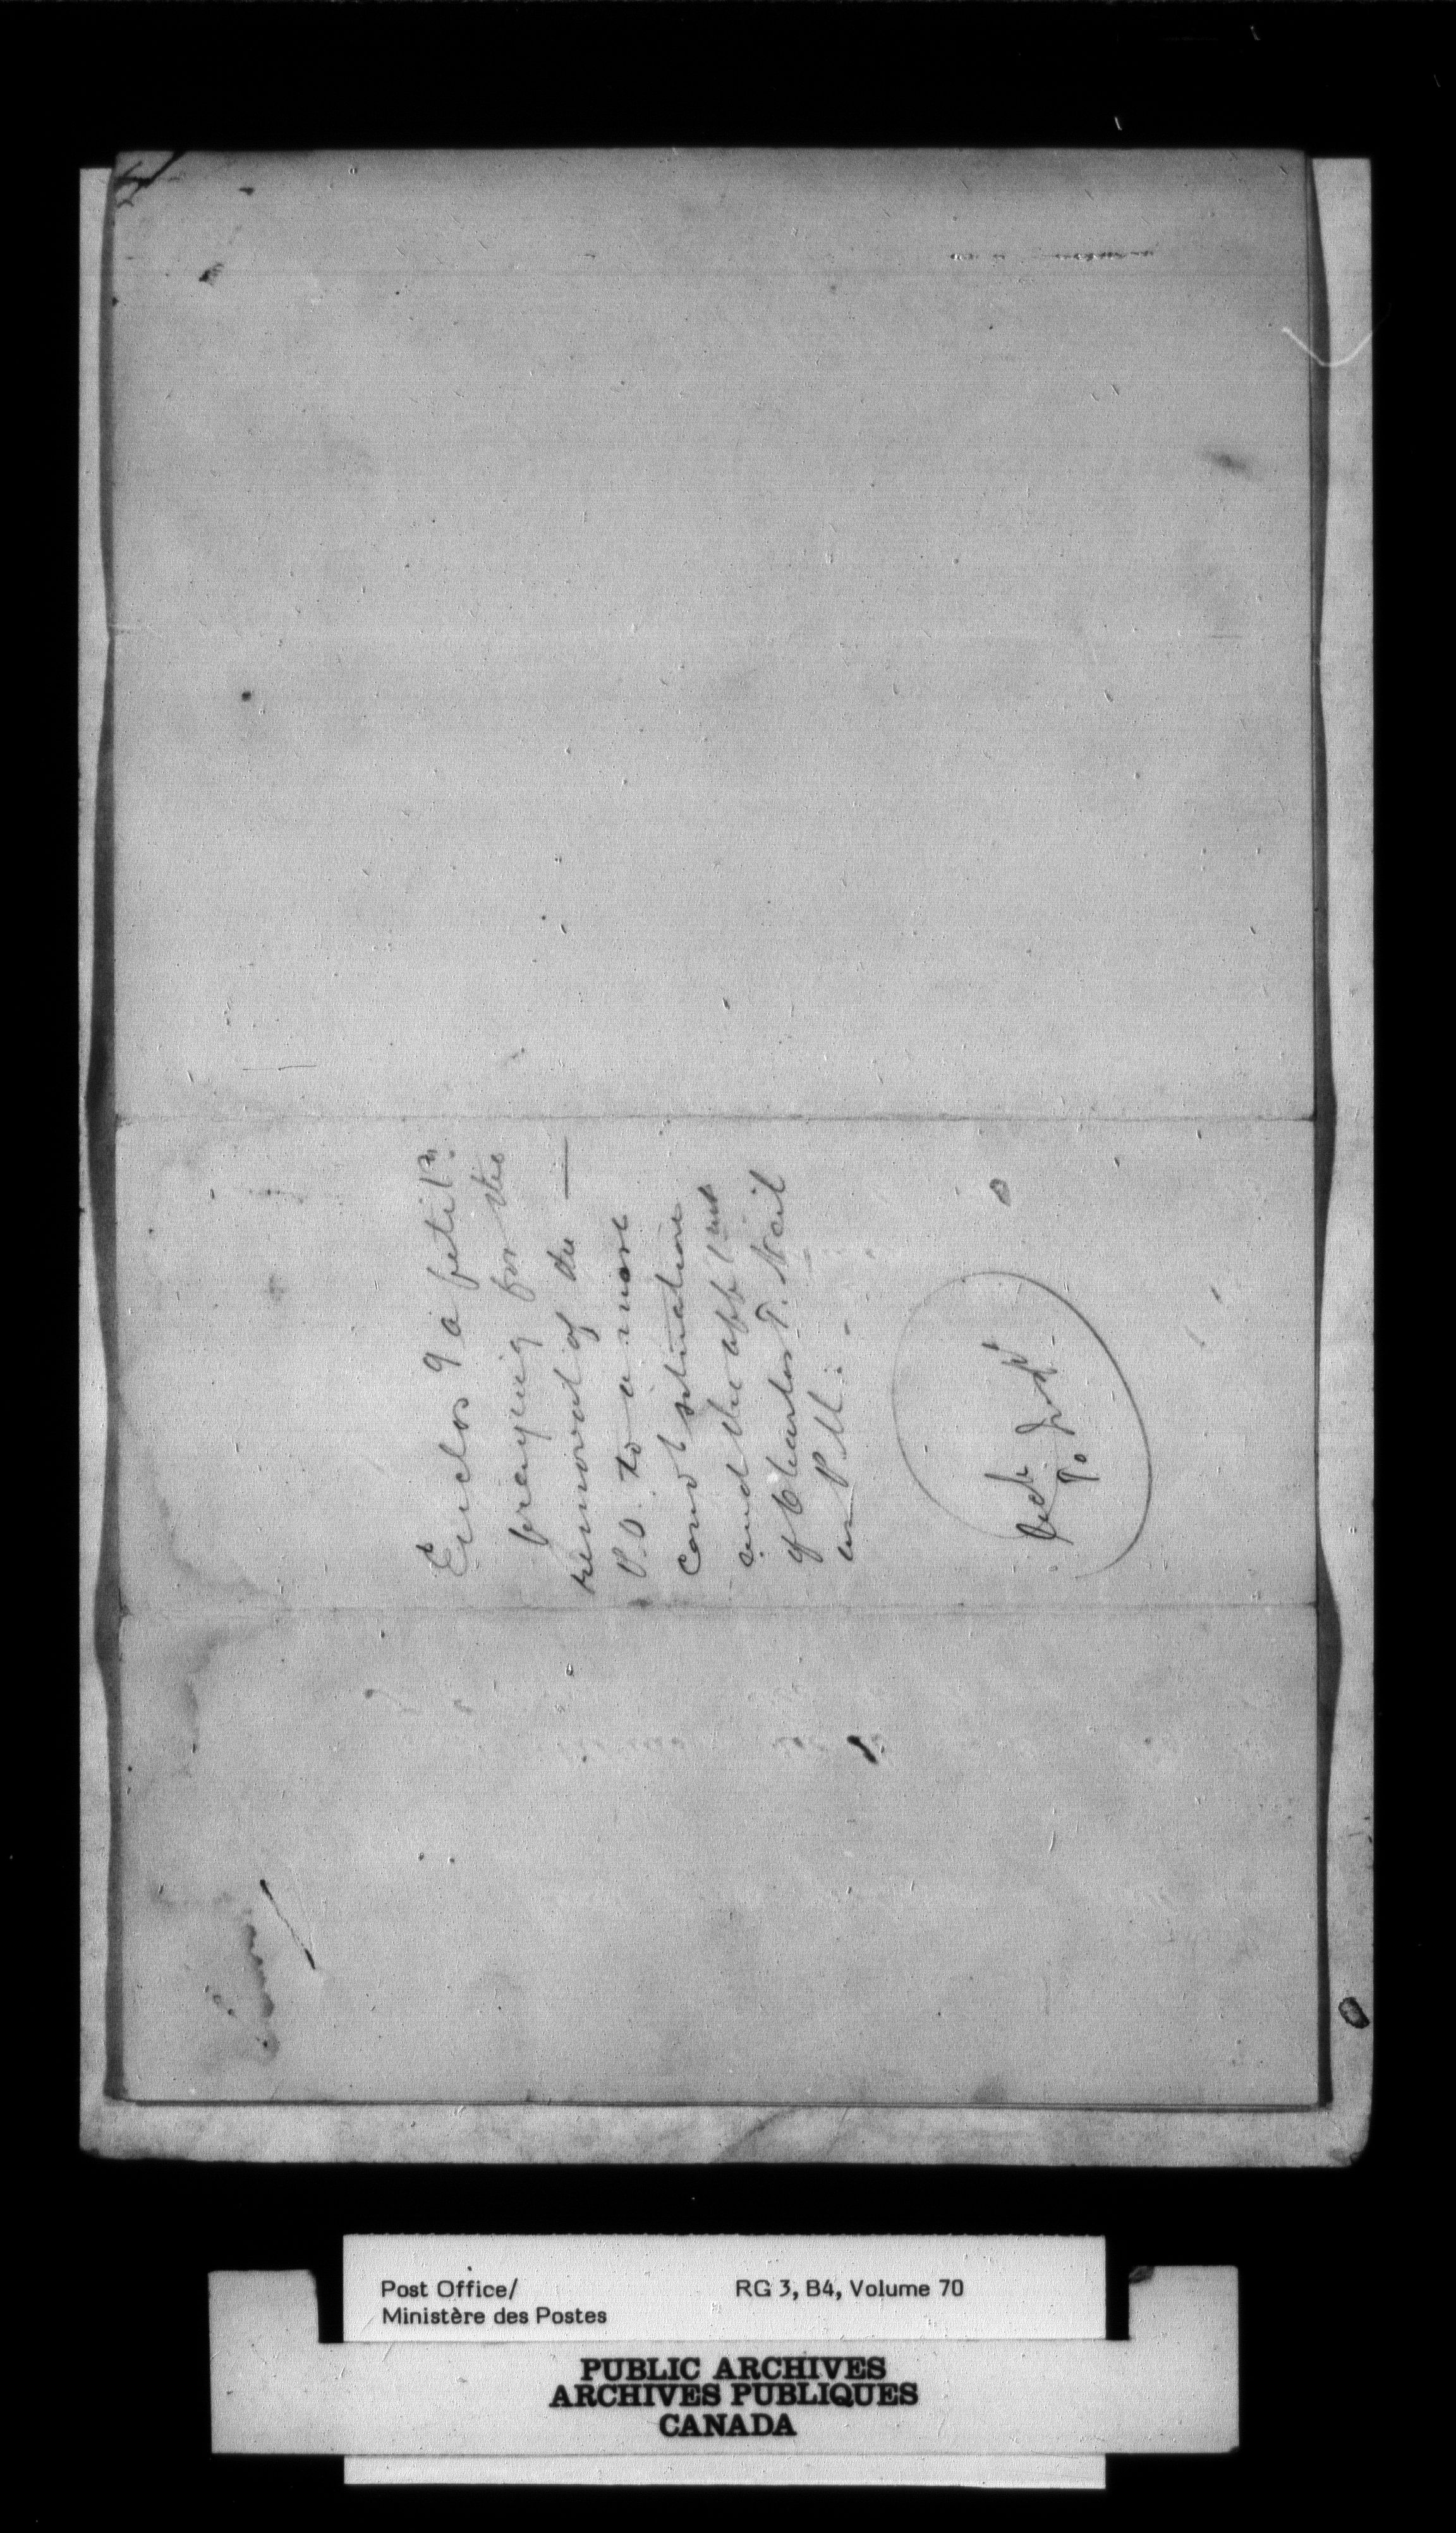 Enclos g a petit n
praying for the
removal of the —
P.O. to a more
Conv t situation
and the app t mt
of Charles T. Nail
as P M. -
Post Office/
Ministère des Postes
RG 3, B4, Volume 70
PUBLIC ARCHIVES
ARCHIVES PUBLIQUES
CANADA